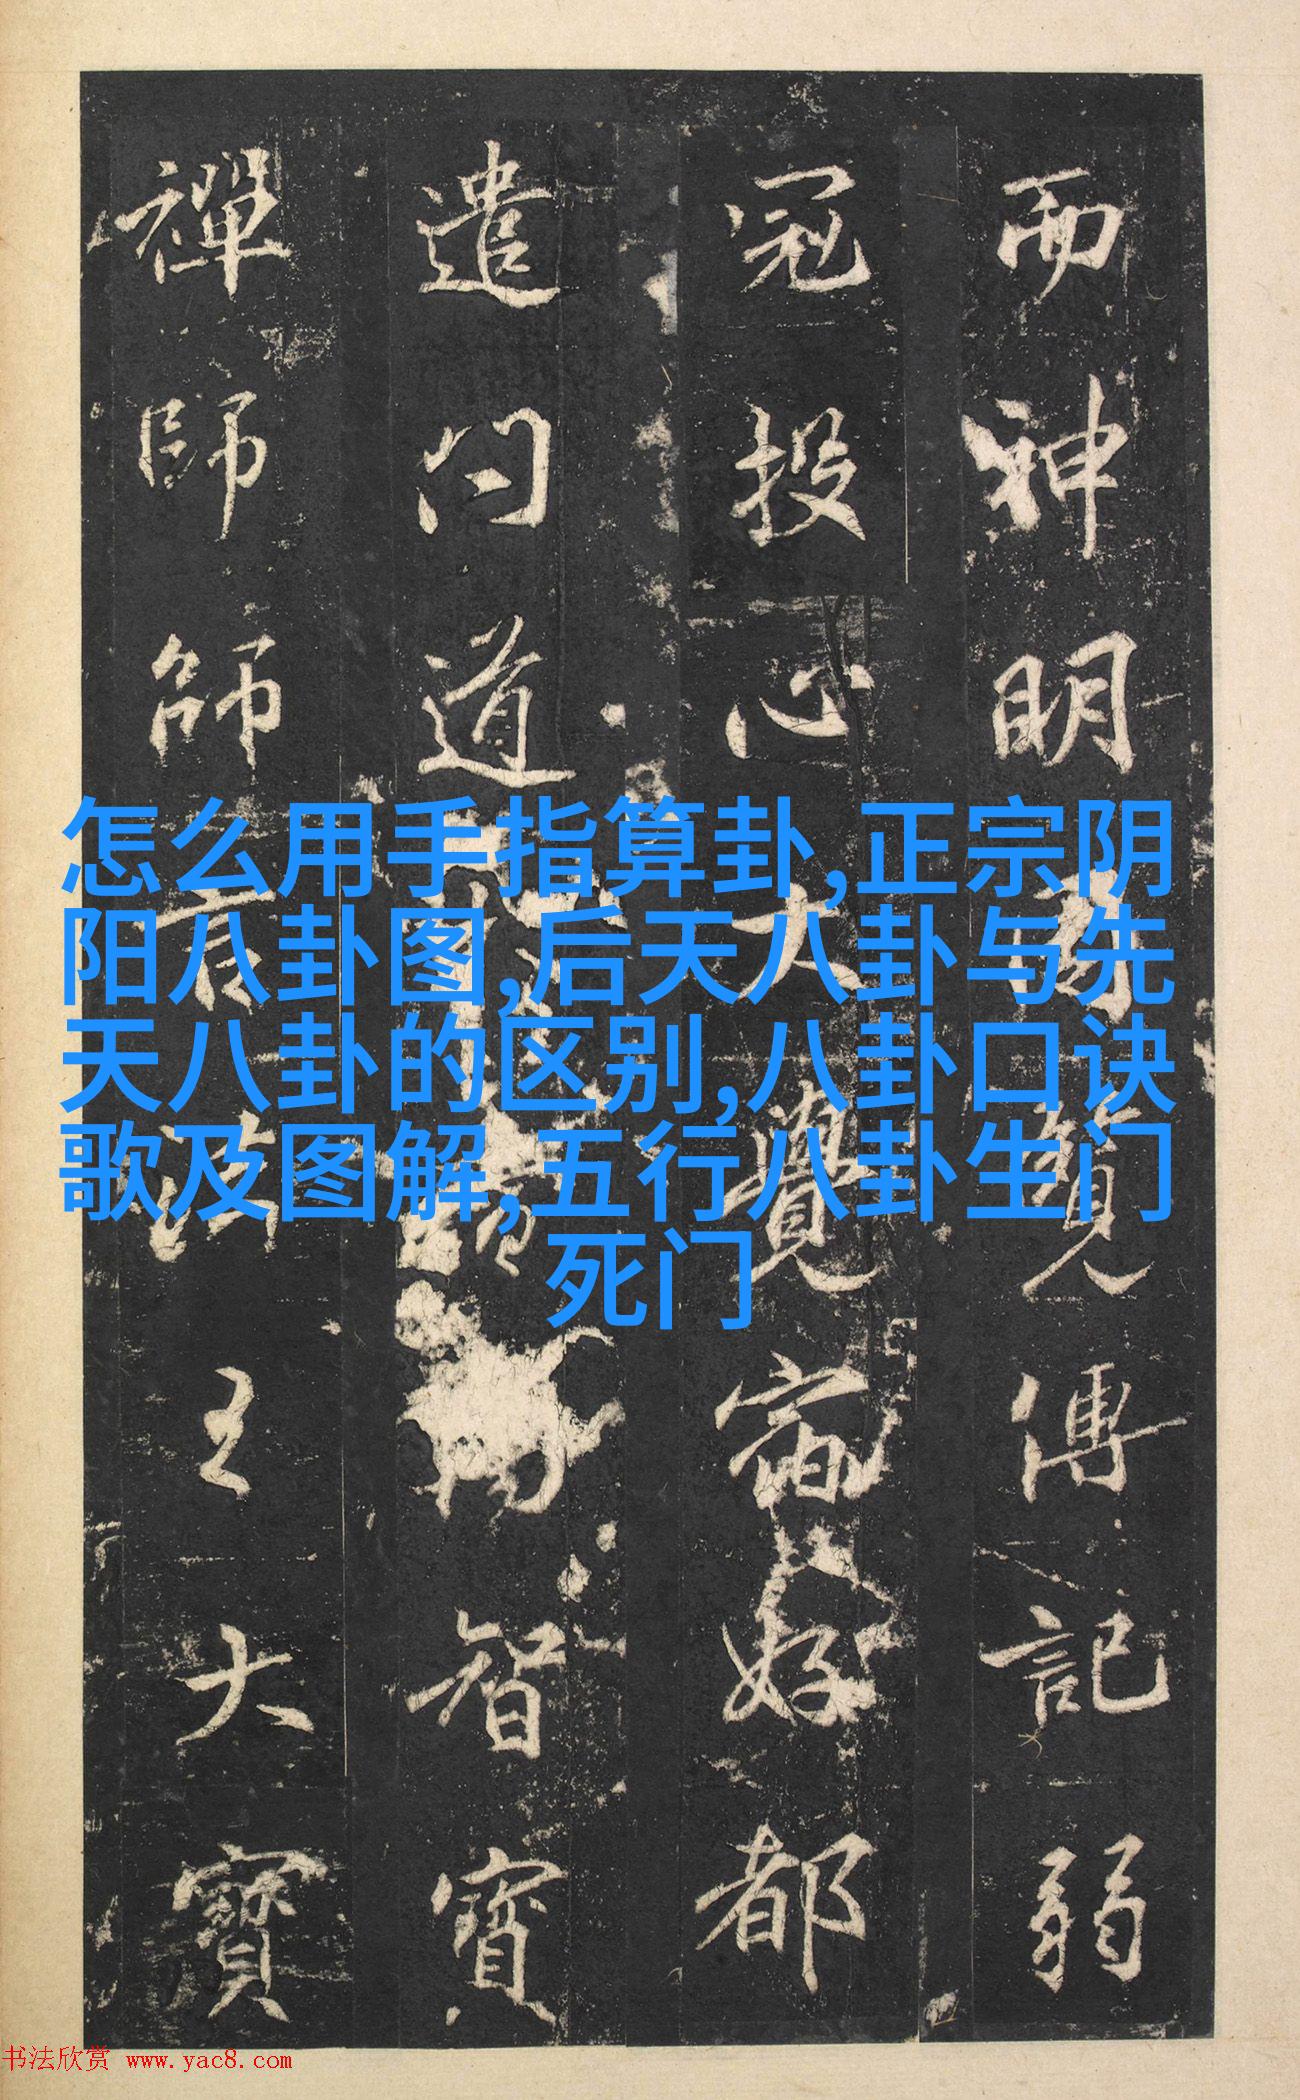 而神明覽傳記弱
冠投心大覺宿好都
遣问道智寶
禪師師言法王大寶
怎么用手指算卦,正宗阴
阳八卦图,后天八卦与先
天八卦的区别,八卦口诀
歌及图解,五行八卦生门
死门
书法欣赏 www.yac8.com